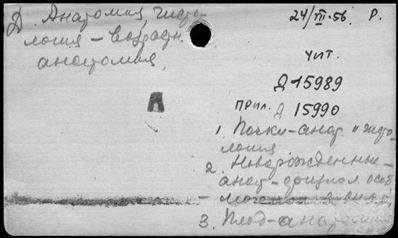 Д Анатомия, гисто-
логия – возрастн.
анатомия.
24/III-56. Р.
чит.
Д 15989
прил. Д 15990
Д
1. Почки-анат. и гисто-
логия
2. Новорожденные-
анат.-физиол. особ.
3. Плод-анатомия